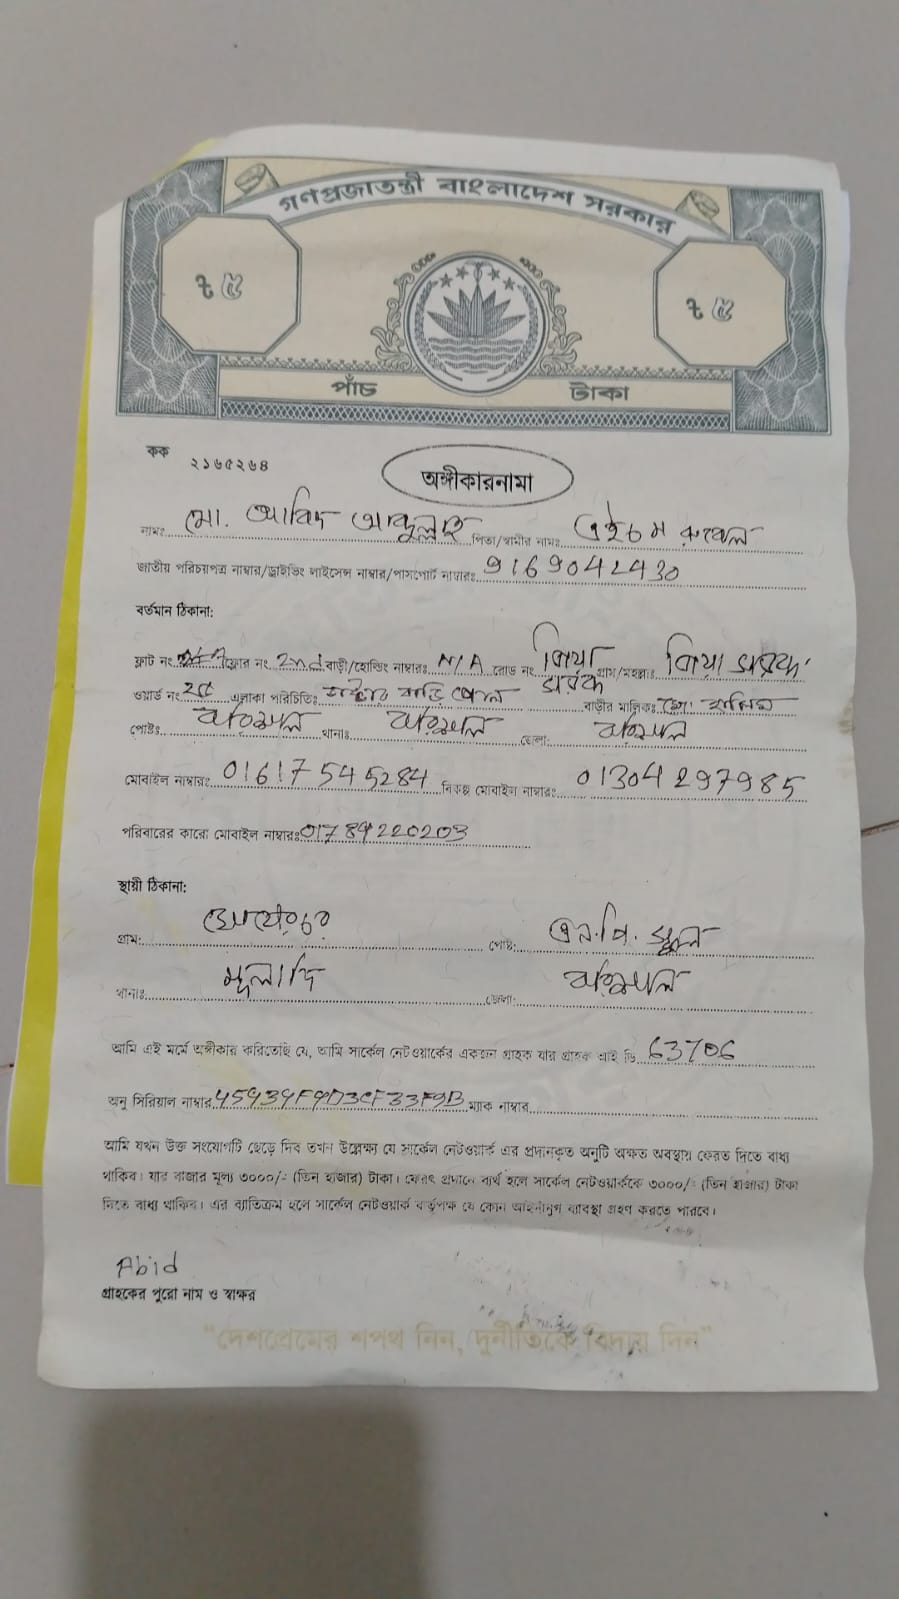 গণপ্রজাতন্ত্রী বাংলাদেশ সরকার
৳ ৫ ৳ ৫
পাঁচ টাকা
কক ২১৬৫২৬৪
অঙ্গীকারনামা
নামঃ মো. আবিদ আব্দুল্লাহ পিতা/স্বামীর নামঃ এইচ এম রুবেল
জাতীয় পরিচয়পত্র নাম্বার/ড্রাইভিং লাইসেন্স নাম্বার/পাসপোর্ট নাম্বারঃ 9169042430
বর্তমান ঠিকানা:
ফ্লাট নং ফ্লোর নং 2nd বাড়ী/হোল্ডিং নাম্বারঃ N/A রোড নং জিয়া সড়ক গ্রাম/মহল্লাঃ জিয়া সড়ক
ওয়ার্ড নং ২৫ এলাকা পরিচিতিঃ বাড়ি পোল বাড়ীর মালিকঃ মো:
পোষ্টঃ বরিশাল থানাঃ বরিশাল জেলা: বরিশাল
মোবাইল নাম্বারঃ 01617545284 বিকল্প মোবাইল নাম্বারঃ 01304297985
পরিবারের কারো মোবাইল নাম্বারঃ 01784220203
স্থায়ী ঠিকানা:
গ্রাম: পোষ্ট: এন.পি. স্কুল
থানাঃ মুলাদি জেলা: বরিশাল
আমি এই মর্মে অঙ্গীকার করিতেছি যে, আমি সার্কেল নেটওয়ার্কের একজন গ্রাহক যার গ্রাহক আই ডি 63706
অনু সিরিয়াল নাম্বার 45939F9D3CF33F9B ম্যাক নাম্বার
আমি যখন উক্ত সংযোগটি ছেড়ে দিব তখন উল্লেক্ষ্য যে সার্কেল নেটওয়ার্ক এর প্রদানকৃত অনুটি অক্ষত অবস্থায় ফেরত দিতে বাধ্য
থাকিব। যার বাজার মূল্য ৩০০০/- (তিন হাজার) টাকা। ফেরৎ প্রদানে ব্যর্থ হলে সার্কেল নেটওয়ার্ককে ৩০০০/- (তিন হাজার) টাকা
দিতে বাধ্য থাকিব। এর ব্যতিক্রম হলে সার্কেল নেটওয়ার্ক কর্তৃপক্ষ যে কোন আইনানুগ ব্যাবস্থা গ্রহণ করতে পারবে।
Abid
গ্রাহকের পুরো নাম ও স্বাক্ষর
"দেশপ্রেমের শপথ নিন, দুর্নীতিকে বিদায় দিন"